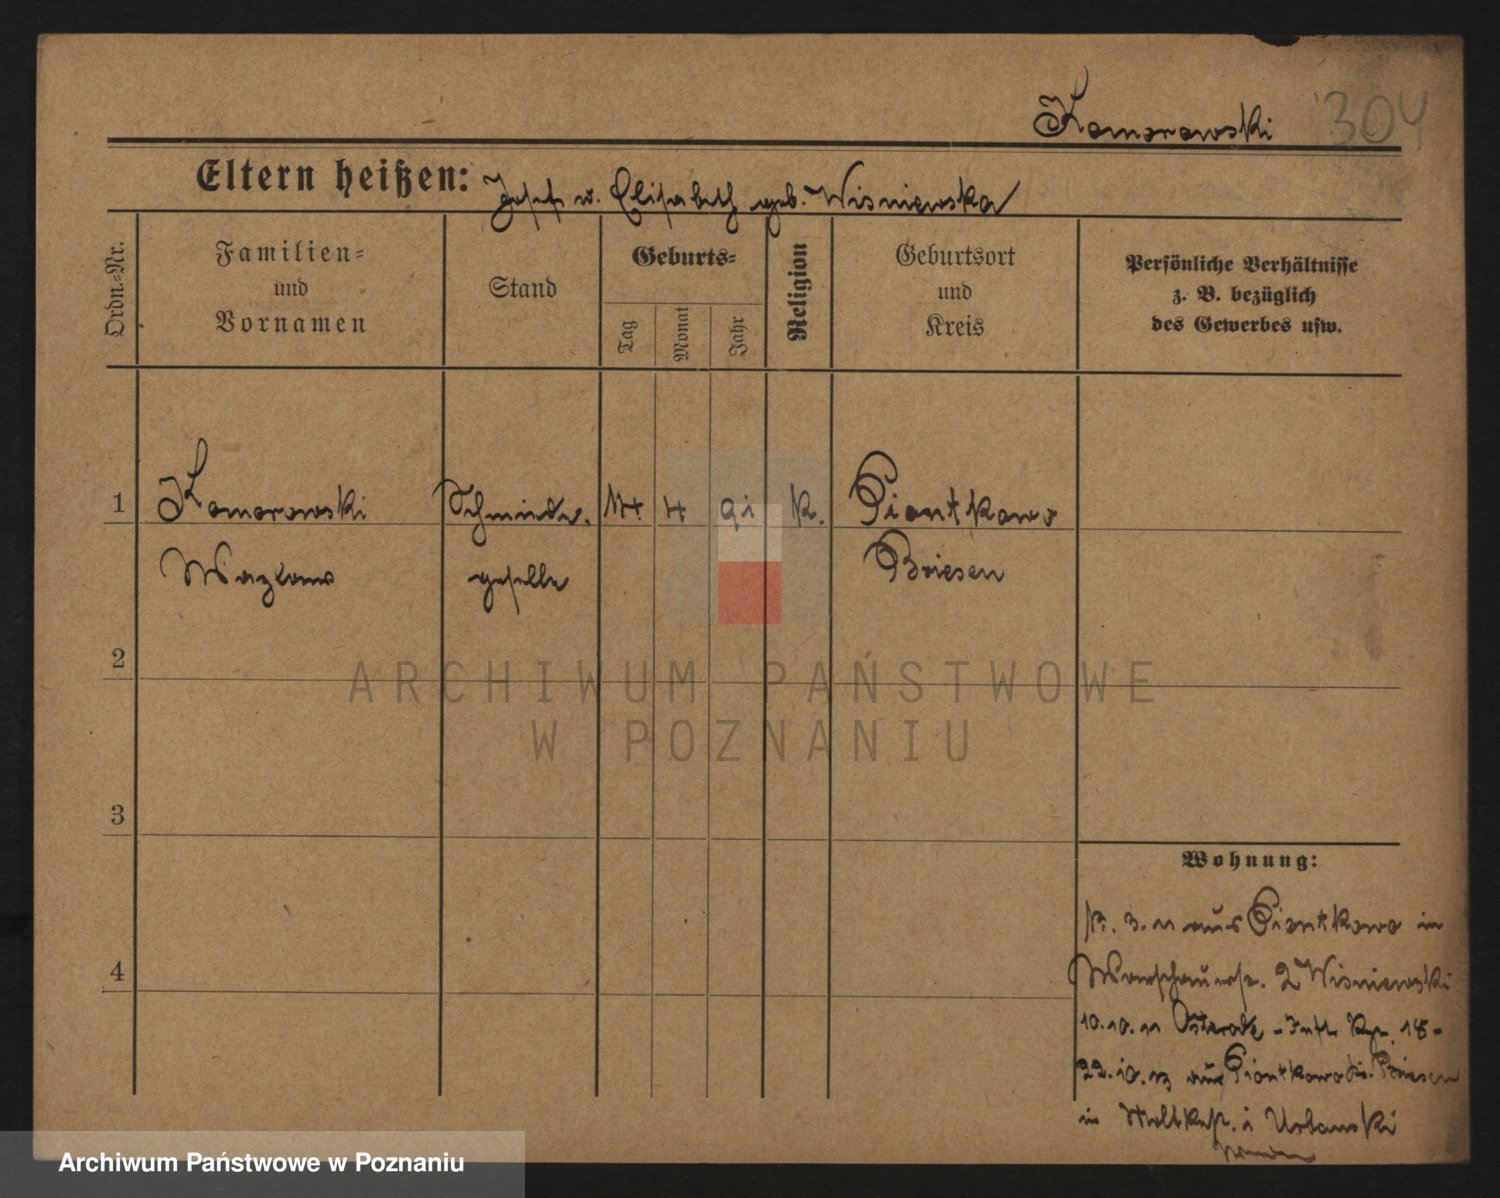 Komorowski 304
Eltern heißen: Josef u. Elisabeth geb. Wisniewska
Ordn.-Nr.
Familien-
und
Vornamen
Stand
Geburts-
Tag
Monat
Jahr
Religion
Geburtsort
und
Kreis
Persönliche Verhältnisse
z. B. bezüglich
des Gewerbes usw.
1 Komorowski 4 91 K. Piontkowo
Wazlaw geselle Briesen
2
3
4
Wohnung:
3. 11 aus Piontkowo in
Warschauerstr. 2 Wisniewski
10.10.11 Osterode - Inftr. Rgt. 18 -
22.10.13 aus Piontkowo Kr. Briesen
in Urbanski
ARCHIWUM PAŃSTWOWE
W POZNANIU
Archiwum Państwowe w Poznaniu